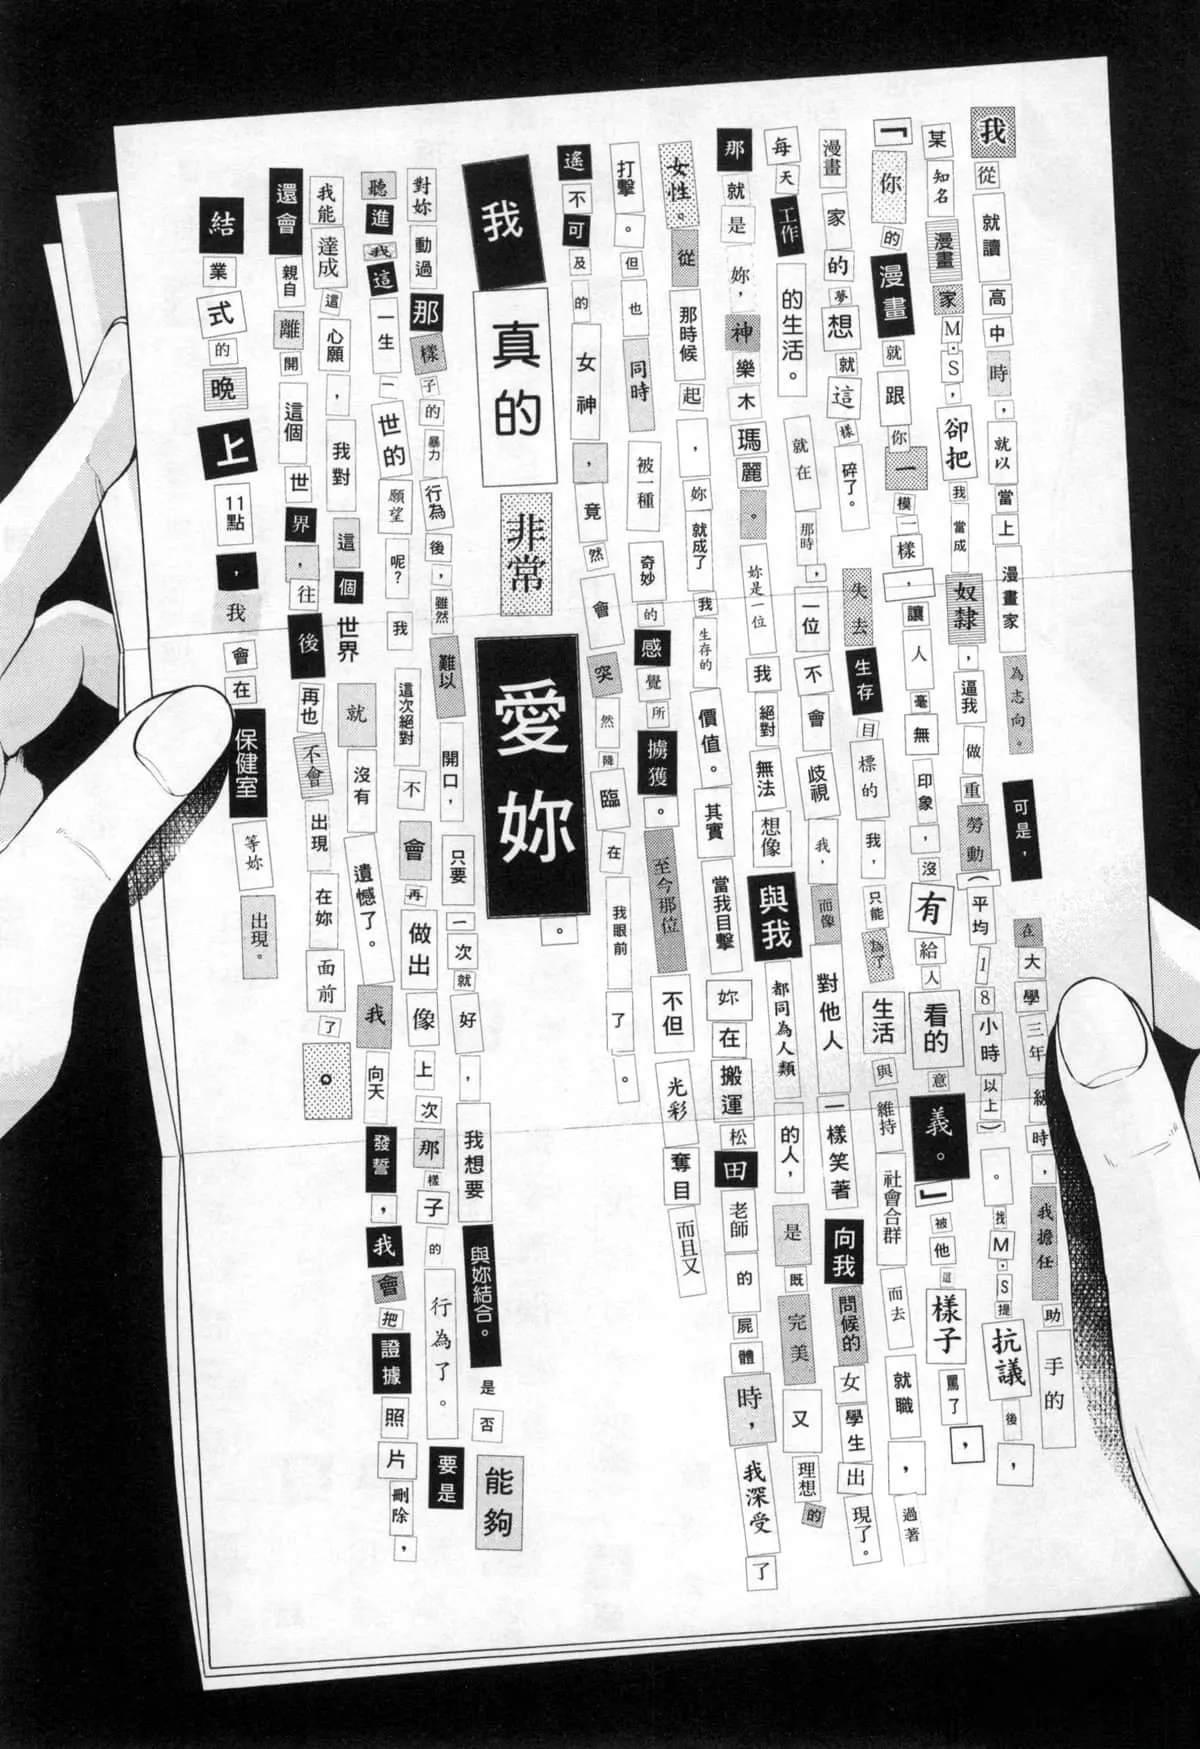 我從就讀高中時，就以當上漫畫家為志向。可是，在大學三年級時，我擔任助手的
某知名漫畫家M・S，卻把我當成奴隸，逼我做重勞動（平均18小時以上）。找M・S提抗議後，
『你的漫畫就跟你一模一樣，讓人毫無印象，沒有給人看的意義。』被他這樣子罵了，
漫畫家的夢想就這樣碎了。失去生存目標的我，只能為了生活與維持社會合群而去就職，過著
每天工作的生活。就在那時，一位不會歧視我，而像對他人一樣笑著向我問候的女學生出現了。
那就是妳，神樂木瑪麗。妳是一位我絕對無法想像與我都同為人類的人，是既完美又理想的
女性。從那時候起，妳就成了我生存的價值。其實當我目擊妳在搬運松田老師的屍體時，我深受了
打擊。但也同時被一種奇妙的感覺所擄獲。至今那位不但光彩奪目而且又
遙不可及的女神，竟然會突然降臨在我眼前了。
我真的非常愛妳。
對妳動過那樣子的暴力行為後，雖然難以開口，只要一次就好，我想要與妳結合。是否能夠
聽進我這一生一世的願望呢？我這次絕對不會再做出像上次那樣子的行為了。要是
我能達成這心願，我對這個世界就沒有遺憾了。我向天發誓，我會把證據照片刪除，
還會親自離開這個世界，往後再也不會出現在妳面前了。
結業式的晚上11點，我會在保健室等妳出現。